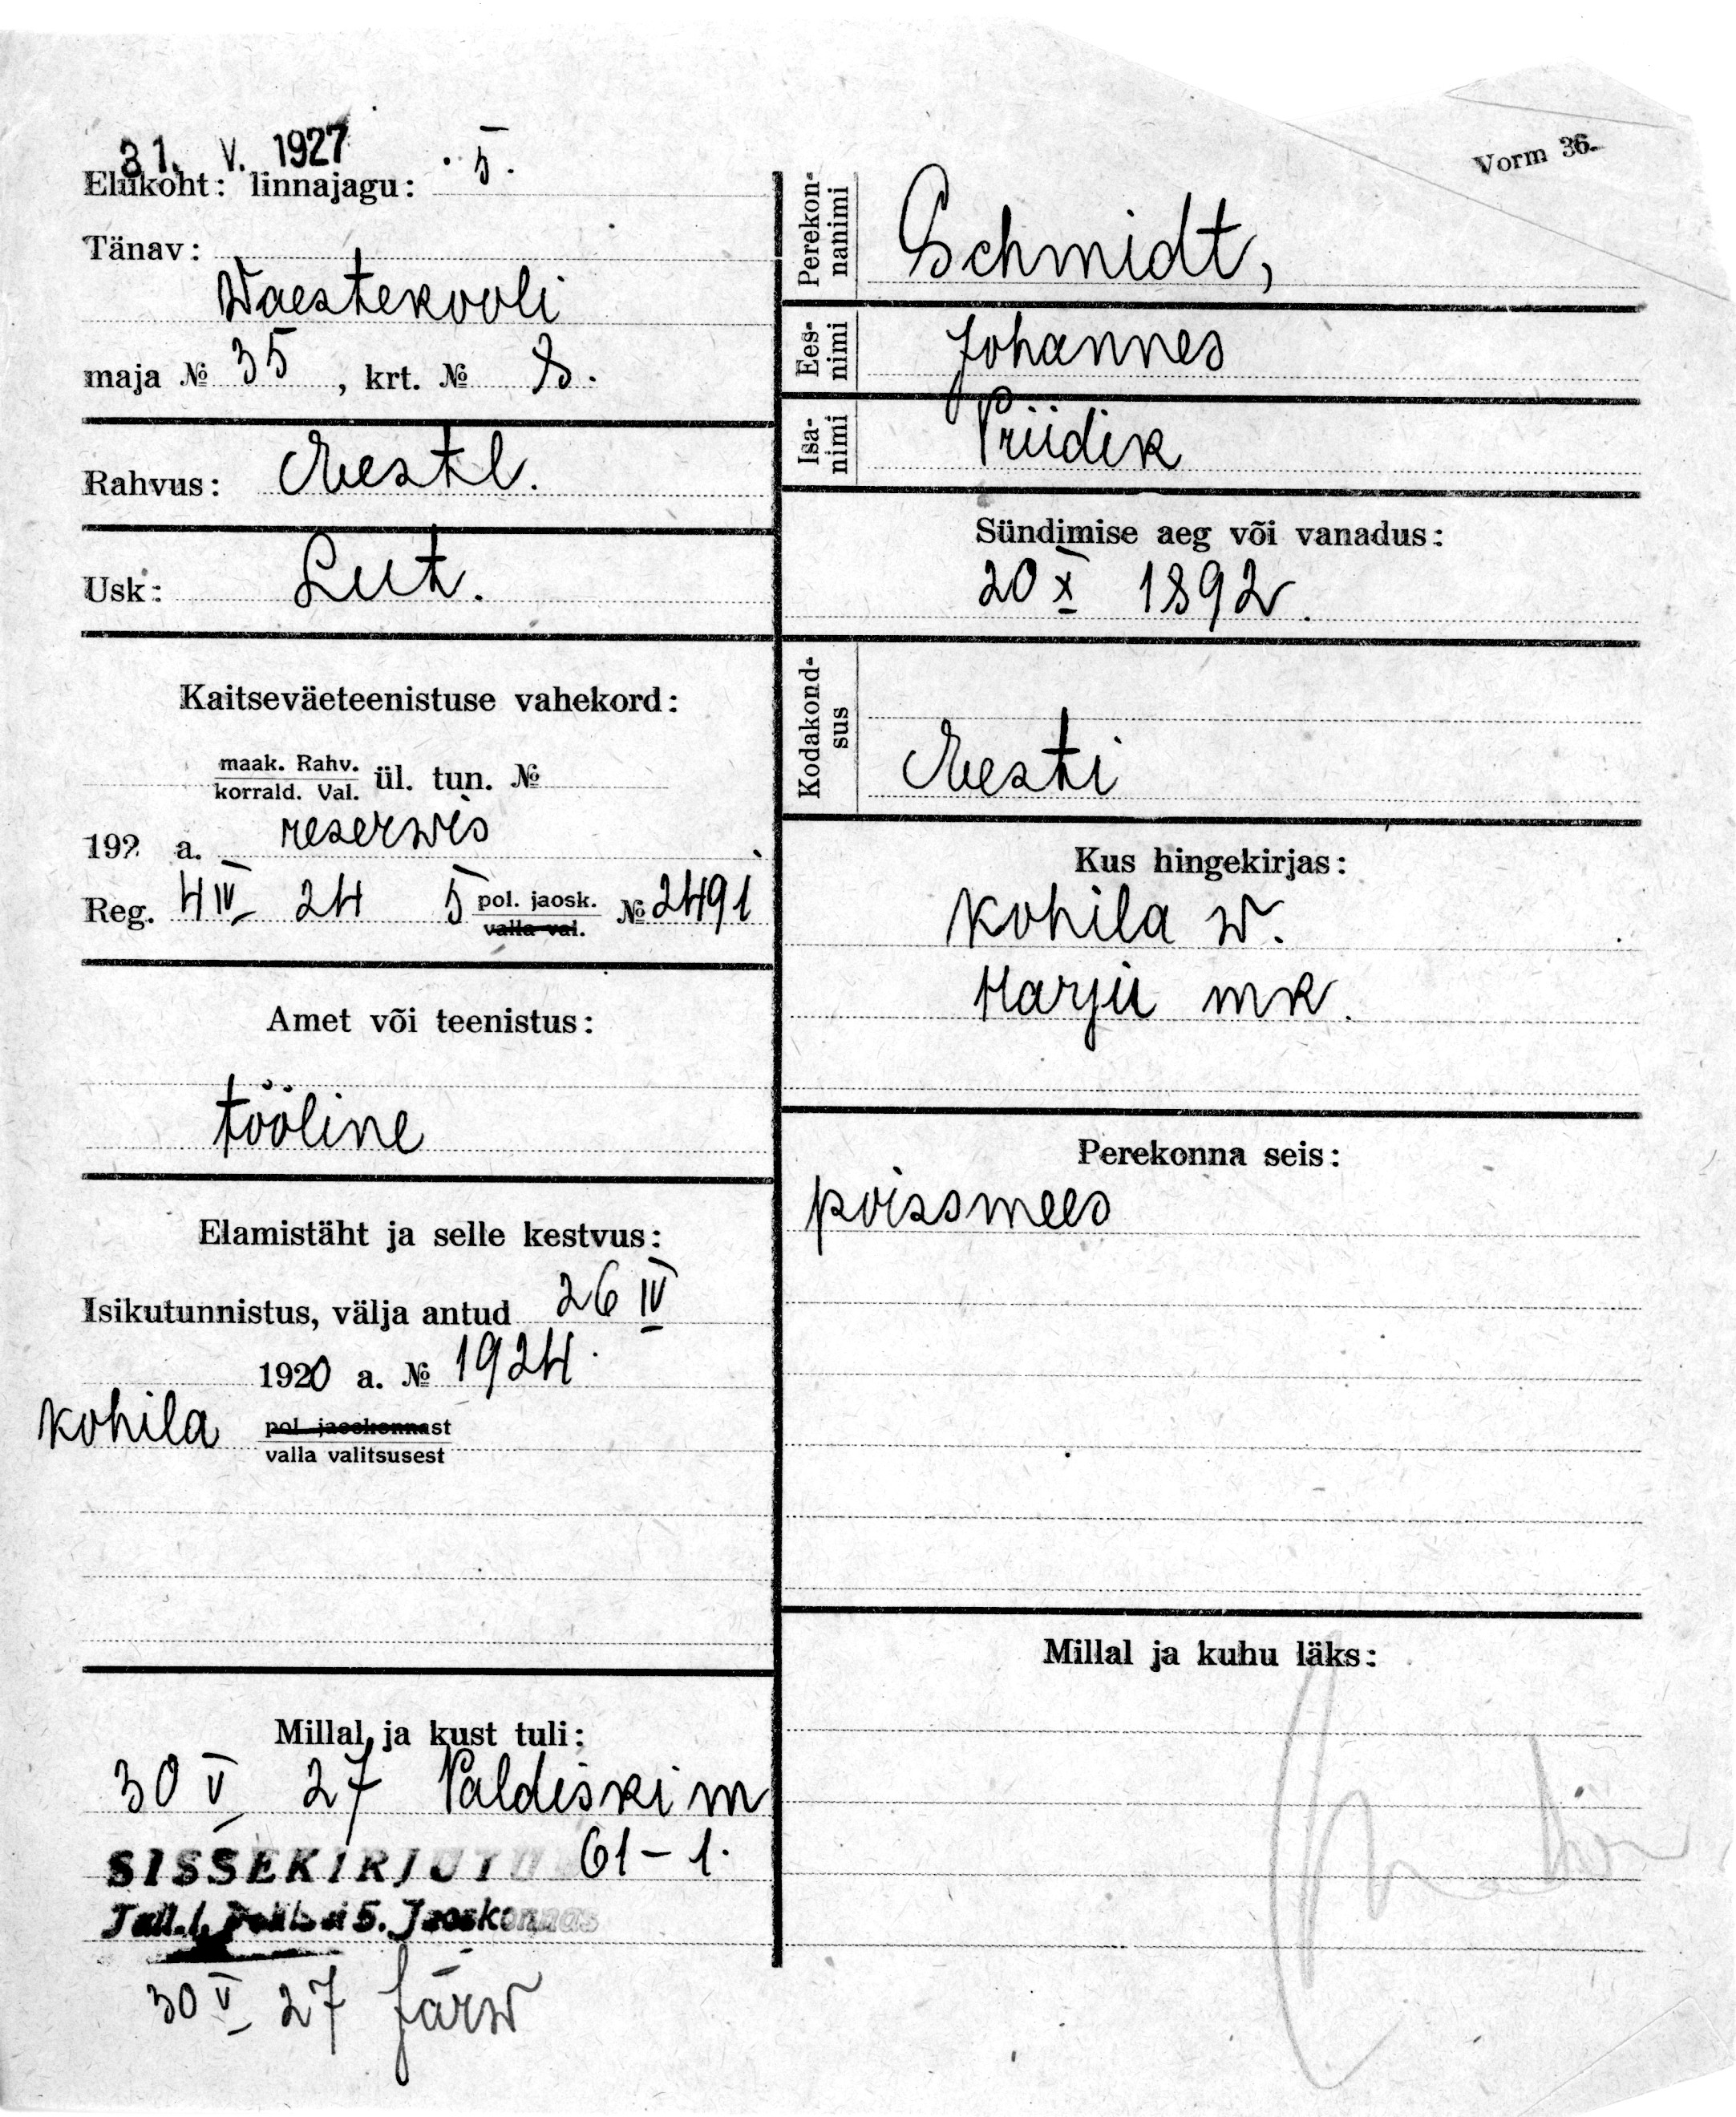 31. V. 1927
Vorm 36.
Elukoht: linnajagu: 5.
Tänav:
Waestekooli
maja № 35, krt. № 8.
Rahvus: Eestl.
Usk: Lut.
Kaitseväeteenistuse vahekord:
maak. Rahv.
korrald. Val. ül. tun. №
192 a. reserwis
Reg. 4 IV 24 5 pol. jaosk. № 2491
valla val.
Amet või teenistus:
tööline
Elamistäht ja selle kestvus:
Isikutunnistus, välja antud 26 IV
1920 a. № 1924.
Kohila pol. jaoskonnast
valla valitsusest
Millal ja kust tuli:
30 V 27 Paldiski m
SISSEKIRJUTUD 61-1.
Tall.l. Politsei 5. Jaoskonnas
30 V 27 Järw
Perekonnanimi
Schmidt,
Eesnimi
Johannes
Isanimi
Priidik
Sündimise aeg või vanadus:
20 X 1892.
Kodakondsus
Eesti
Kus hingekirjas:
Kohila w.
Harju mk.
Perekonna seis:
poissmees
Millal ja kuhu läks: